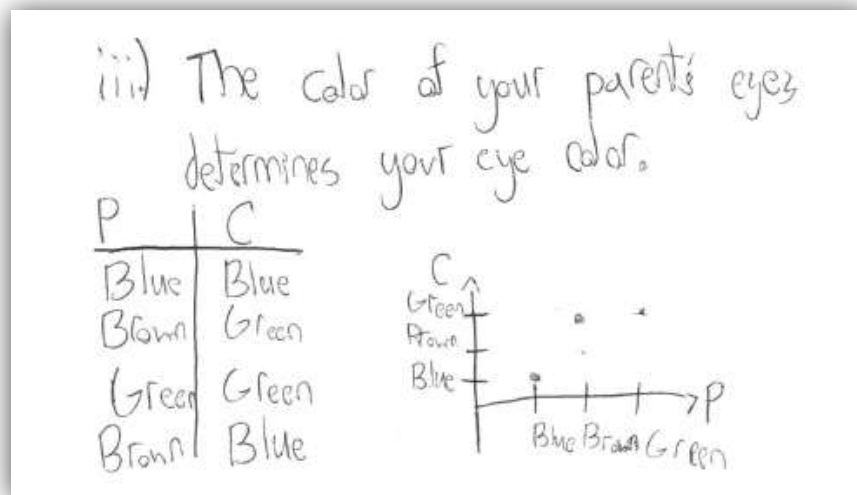 iii.) The color of your parent's eyes
determines your eye color.
P C
Blue Blue
Brown Green
Green Green
Brown Blue
C
Green
Brown
Blue
P
Blue Brown Green